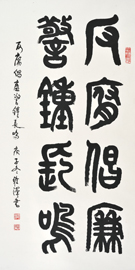 反腐倡廉
警鐘長鳴
反腐倡廉警鐘長鳴 庚子冬 書